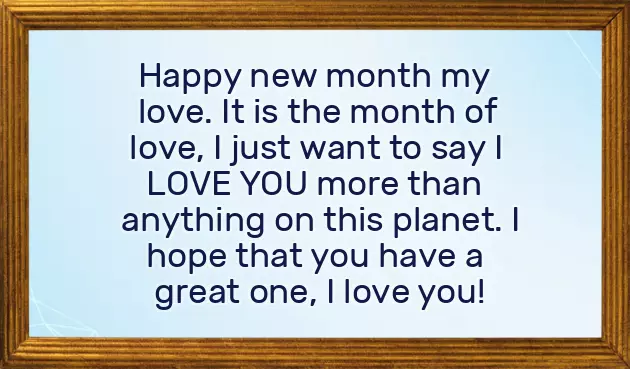 Happy new month my
love. It is the month of
love, I just want to say I
LOVE YOU more than
anything on this planet. I
hope that you have a
great one, I love you!